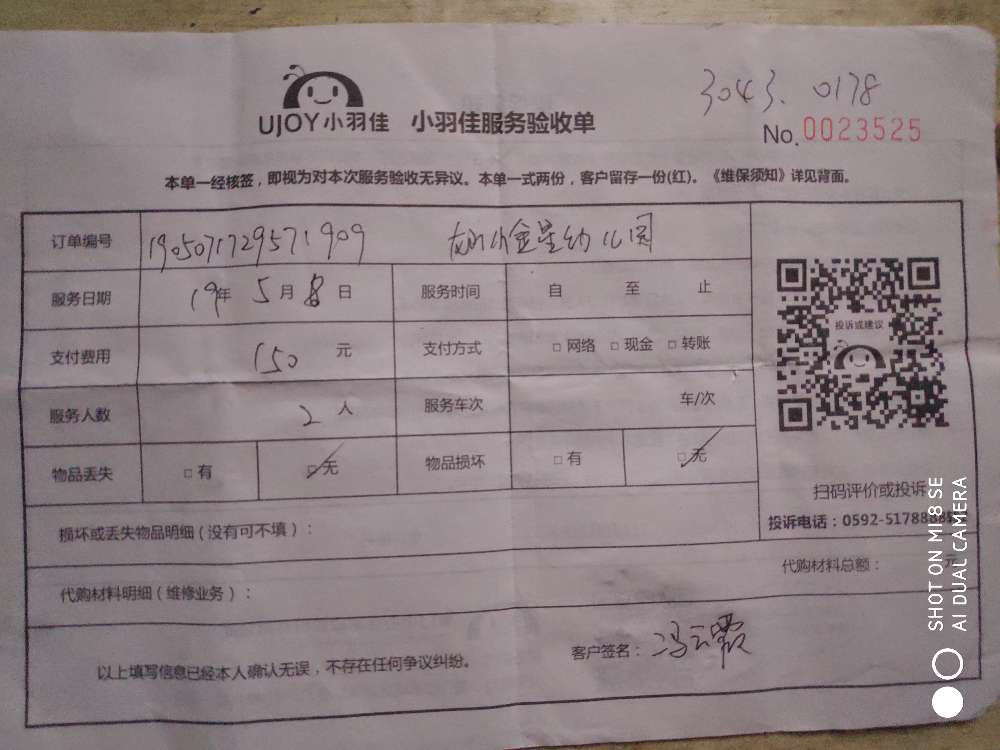 3043.0178
UJOY小羽佳 小羽佳服务验收单
No.0023525
本单一经核签，即视为对本次服务验收无异议。本单一式两份，客户留存一份(红)。《维保须知》详见背面。
订单编号 1905071729571909 金星幼儿园
服务日期 19年 5月 8日 服务时间 自 至 止
支付费用 150 元 支付方式 □ 网络 □ 现金 □ 转账
服务人数 2 人 服务车次 车/次
物品丢失 □ 有 □ 无 物品损坏 □ 有 □ 无
投诉或建议
扫码评价或投诉
投诉电话：0592-517888
损坏或丢失物品明细（没有可不填）：
代购材料明细（维修业务）：
代购材料总额： 元
以上填写信息已经本人确认无误，不存在任何争议纠纷。
客户签名：冯云霞
SHOT ON MI 8 SE
AI DUAL CAMERA